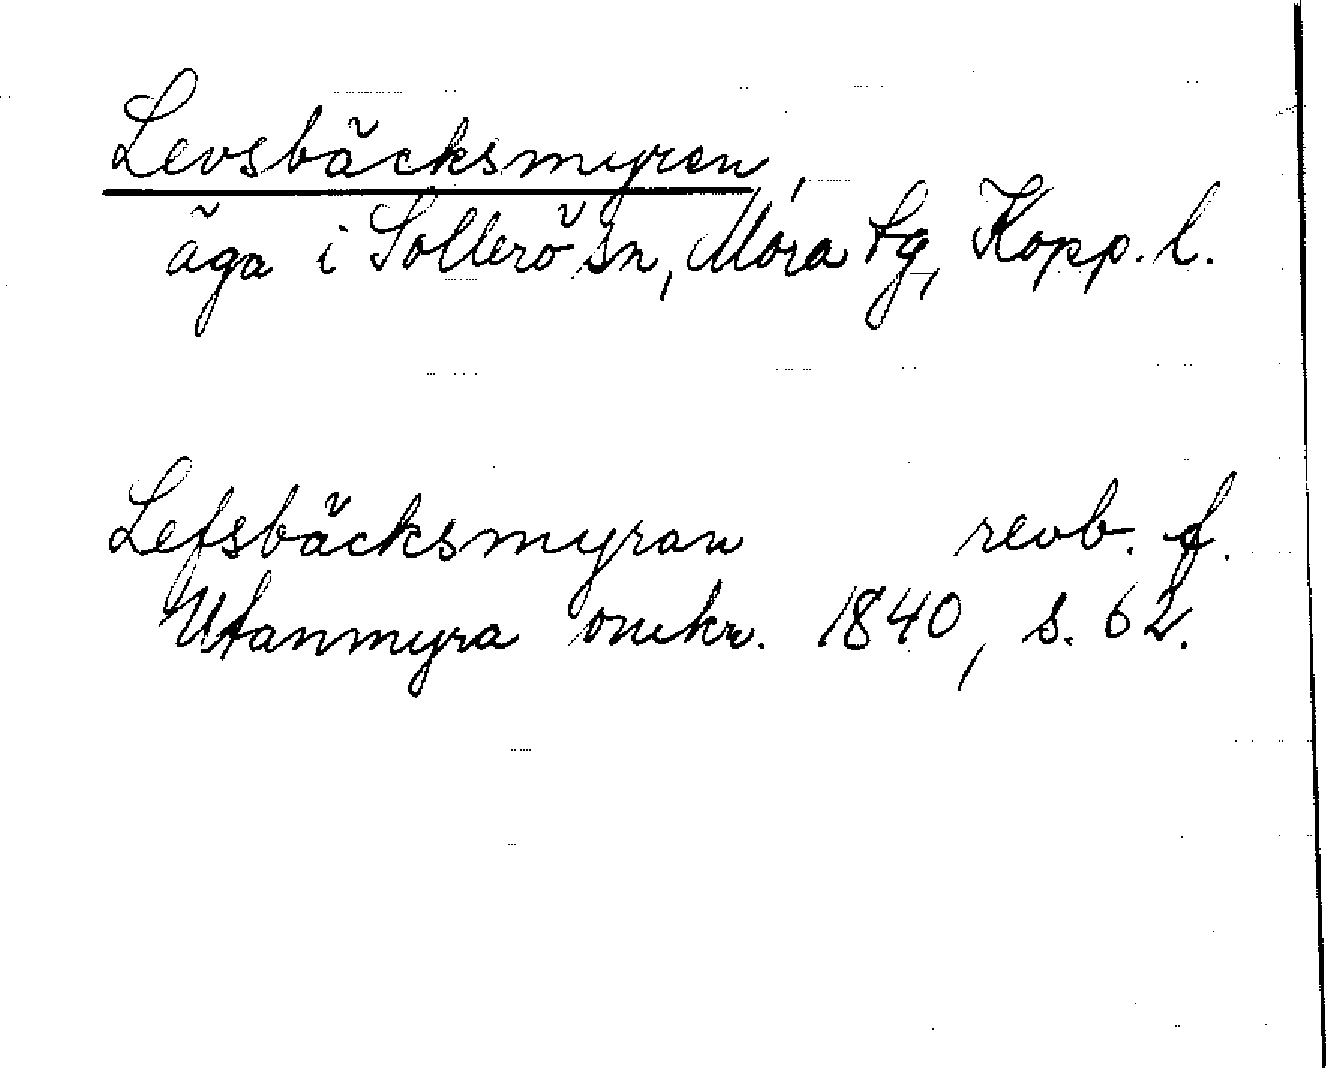 Levsbäcksmyren,
äga i Sollerö sn, Mora tg, Kopp. l.
Lefsbäcksmyran revb. f.
Utanmyra omkr. 1840, s. 62.